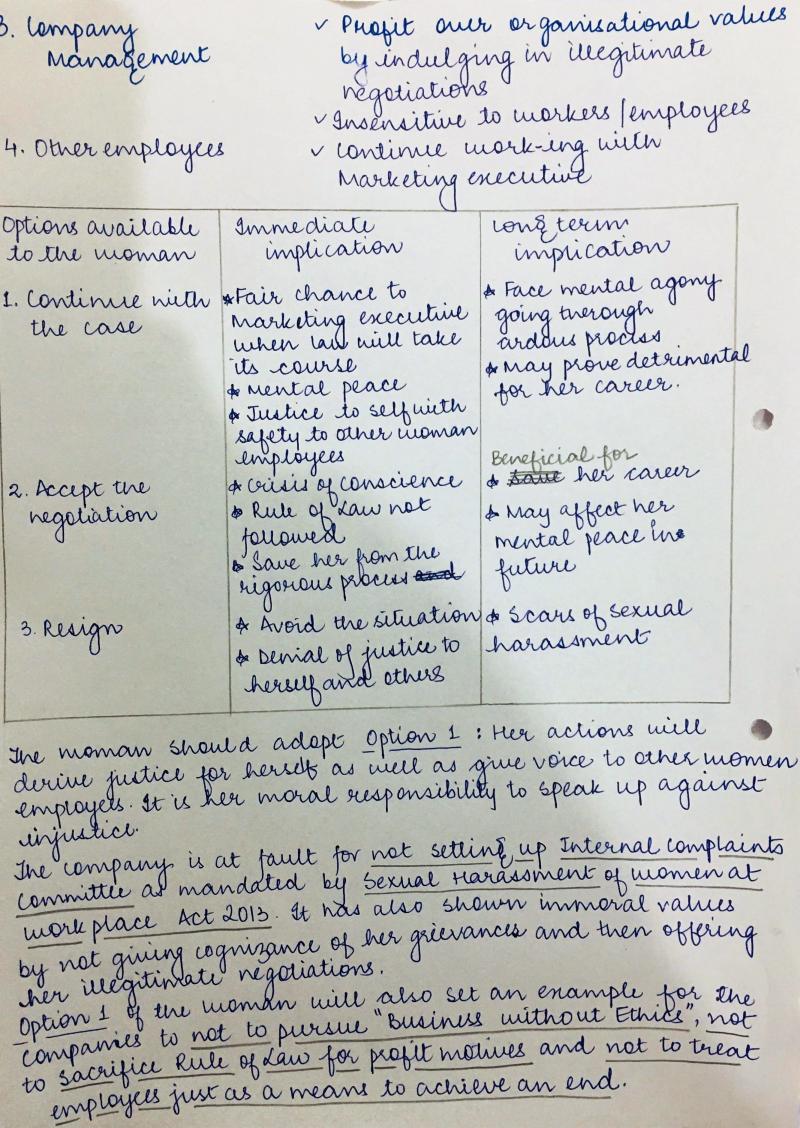 3. Company
Management
✓ Profit over organisational values
by indulging in illegitimate
negotiations
✓ Insensitive to workers/employees
4. Other employees
✓ Continue work-ing with
Marketing executive
Options available
to the woman
Immediate
implication
Long term
implication
1. Continue with
the case
* Fair chance to
Marketing executive
when law will take
its course
* Mental peace
* Justice to self with
safety to other woman
employees
* Face mental agony
going thorough
ardous process
* May prove detrimental
for her career.
2. Accept the
negotiation
* Crisis of conscience
* Rule of Law not
followed
* Save her from the
rigorous process and
Beneficial for
* save her career
* May affect her
mental peace in
future
3. Resign
* Avoid the situation
* Denial of justice to
herself and others
* Scars of sexual
harassment
The woman should adopt Option 1 : Her actions will
derive justice for herself as well as give voice to other women
employees. It is her moral responsibility to speak up against
injustice.
The company is at fault for not setting up Internal Complaints
Committee as mandated by Sexual Harassment of women at
work place Act 2013. It has also shown immoral values
by not giving cognizance of her grievances and then offering
her illegitimate negotiations.
Option 1 of the woman will also set an example for the
companies to not to pursue "Business without Ethics", not
to sacrifice Rule of Law for profit motives and not to treat
employees just as a means to achieve an end.